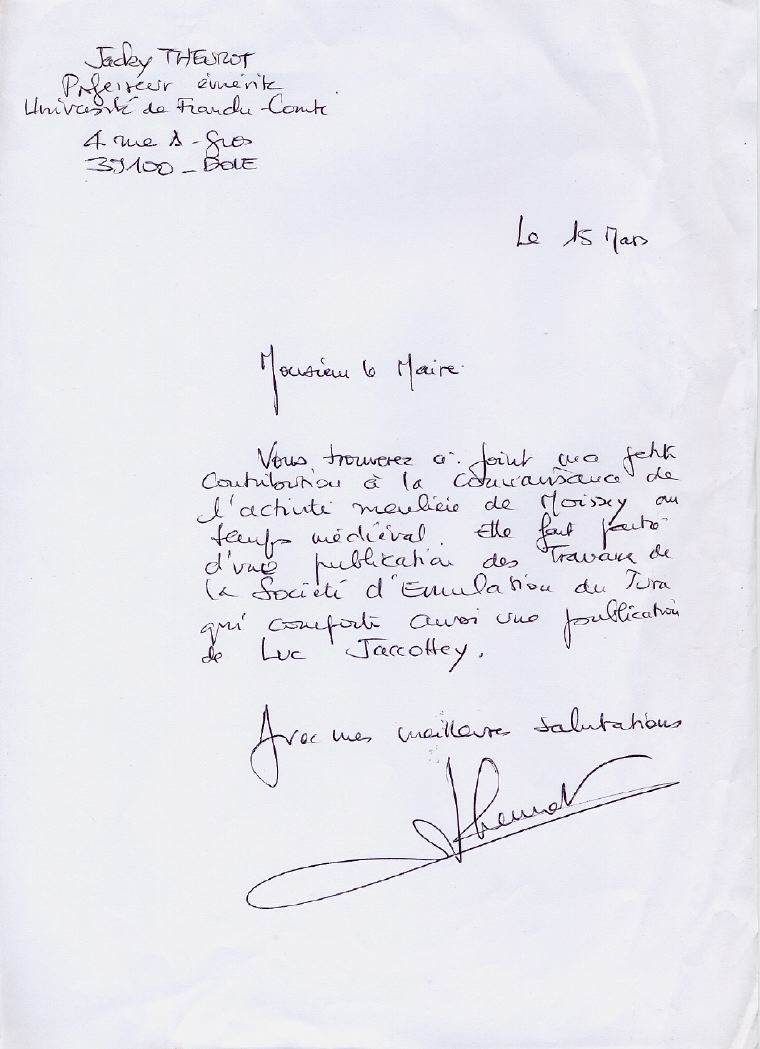 Jacky THEUROT
Professeur émérite
Université de Franche-Comté
4 rue A-Gros
39100 - DOLE
Le 15 Mars
Monsieur le Maire
Vous trouverez ci-joint une petite
contribution à la connaissance de
l'activité meulière de Moissey au
temps médiéval. Elle fait partie
d'une publication des Travaux de
la Société d'Emulation du Jura
qui comporte aussi une publication
de Luc Jaccottey.
Avec mes meilleures salutations
JTheurot